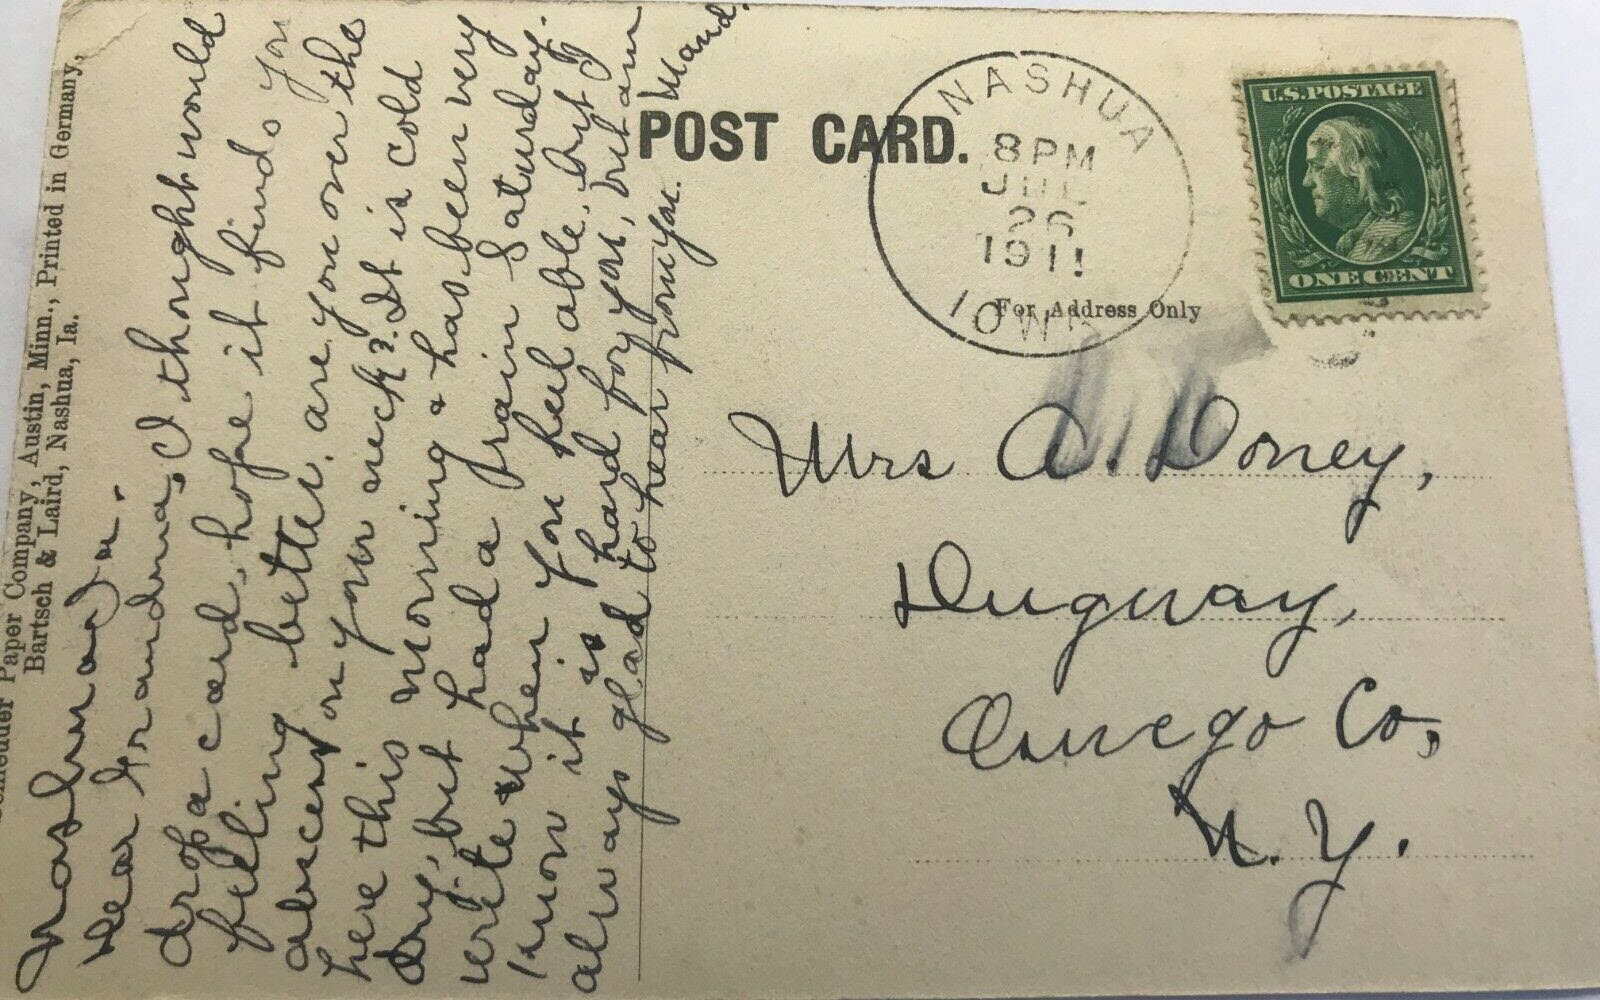 Paper Company, Austin, Minn., Printed in Germany,
Bartsch & Laird, Nashua, Ia.
Nashua, Ia.
Dear Grandma, I thought would
drop a card, hope it finds you
felling better. are you over the
abscess on your neck? It is cold
here this morning & has been very
dry, but had a rain Saturday.
write when you feel able, but I
know it is hard for you, but am
always glad to hear from you. Maud.
POST CARD.
NASHUA
8 PM
JUL
26
1911
IOWA
U.S. POSTAGE
ONE CENT
For Address Only
Mrs A. Doney,
Dugway,
Oswego Co,
N.Y.